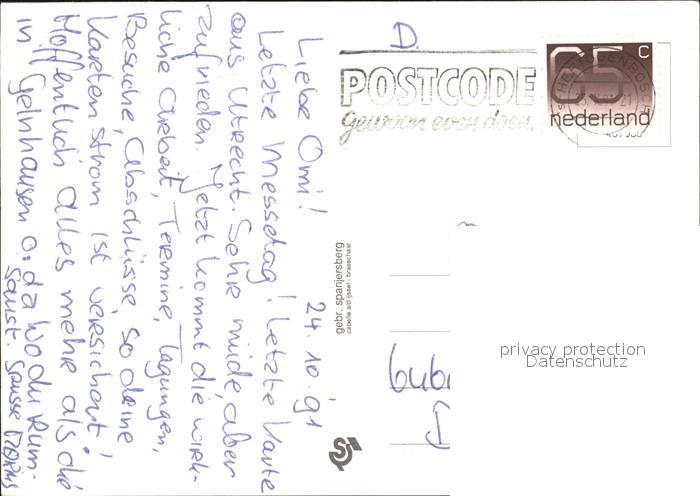 Liebe Omi! 24.10.91
Letzte Messetag! Letzte Karte
aus Utrecht. Sehr müde, aber
zufrieden. Jetzt kommt die wirk-
liche Arbeit, Termine, Tagungen,
Besuche, Abschlüsse, so deine
Karten Strom ist versichert!
Hoffentlich alles mehr als die
in Gelnhausen o. da wo du rum-
saust.
D.
POSTCODE
gewoon even doen.
65 c
nederland
gebr. spanjersberg
capelle a/d ijssel - brasschaat
privacy protection
Datenschutz